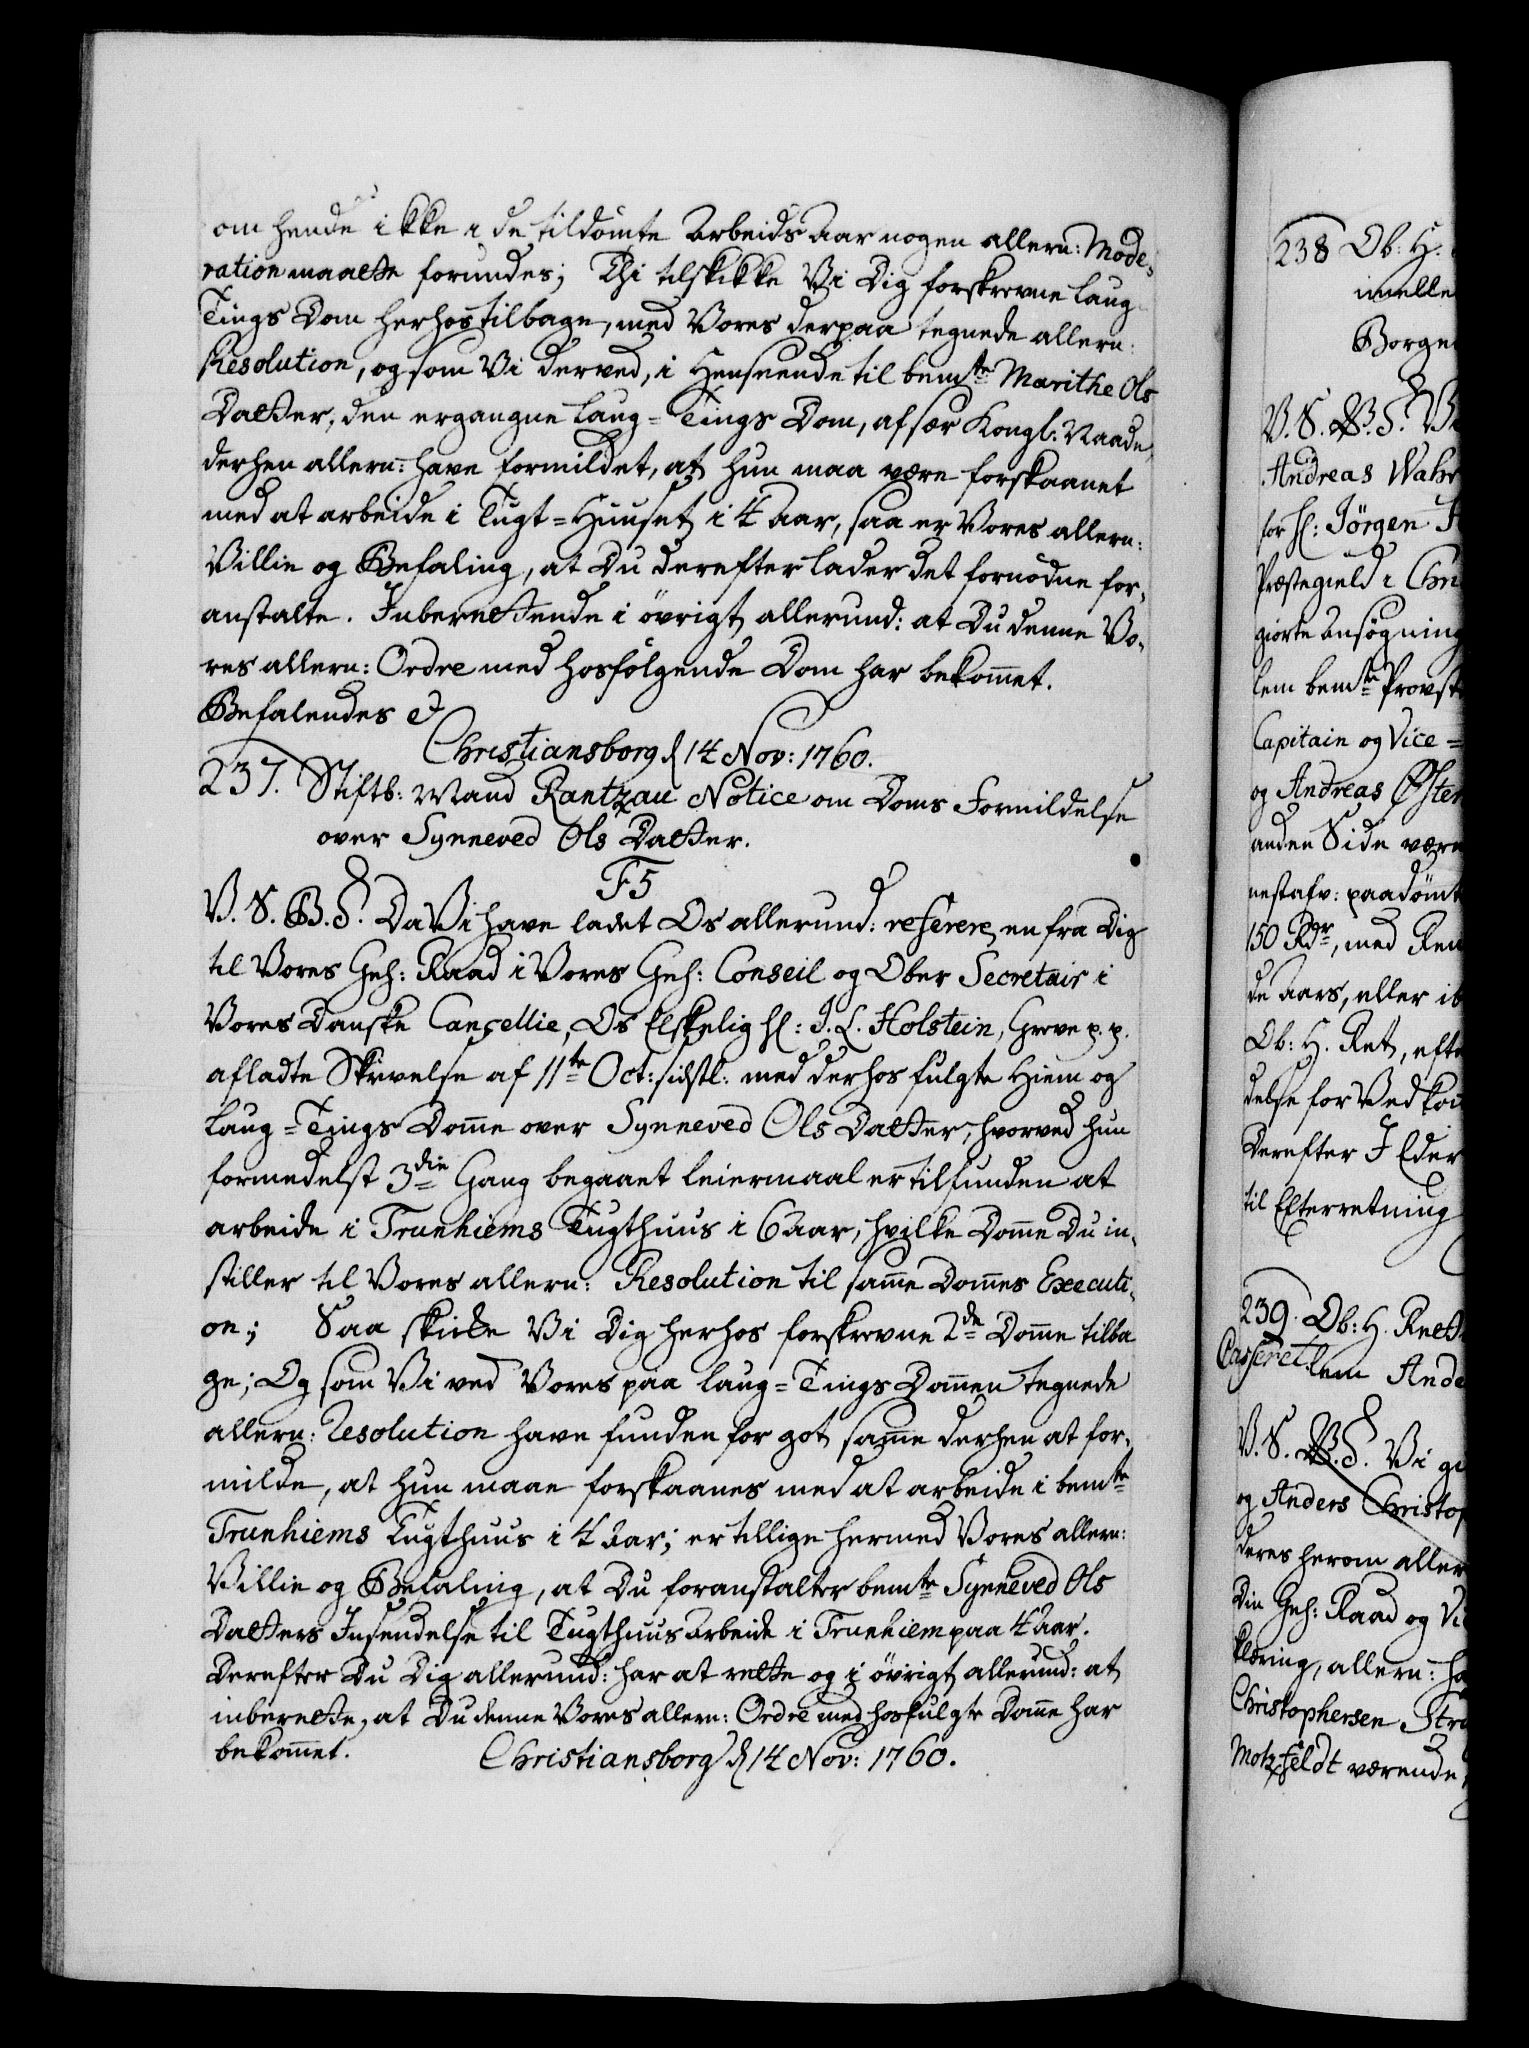 om hende ikke i de tildömte Arbeids Aar nogen allern: Mode-
ration maatte forundes; Thi tilskikke Vi Dig forskrevne Laug-
Tings Dom herhos tilbage, med Vores derpaa tegnede allern:
Resolution, og som Vi derved, i Henseende til bemte Marithe Ols
Datter, den ergangne Laug-Tings Dom, af sær Kongl: Naade,
derhen allern: have formildet, at hun maa være forskaanet
med at arbeide i Tugt-Huuset i 4 Aar, saa er Vores allern:
Villie og Befaling, at Du derefter lader det fornödne for-
anstalte. Inberettende i övrigt allerund: at Du denne Vo-
res allern: Ordre med hosfölgende Dom har bekom̄et.
Befalendes &
Christiansborg d 14 Nov: 1760.
237. Stiftb: Mand Rantzau Notice om Doms Formildelse
over Synneved Ols Datter.
F5
V. S. G. T. Da Vi have ladet Os allerund: referere en fra Dig
til Vores Geh: Raad i Vores Geh: Conseil og Ober Secretair i
Vores Danske Cancellie, Os Elskelig H: J. L. Holstein, Greve p. p.
afladte Skrivelse af 11te Oct: sidstl: med derhos fulgte Hiem og
Laug-Tings Dom̄e over Synneved Ols Datter, hvorved hun
formedelst 3die Gang begaaet Leiermaal er tilfunden at
arbeide i Trunhiems Tugthuus i 6 Aar, hvilke Dom̄e Du in-
stiller til Vores allern: Resolution til sam̄e Dom̄es Executi-
on; Saa skikke Vi Dig herhos forskrevne 2de Dom̄e tilba
ge; Og som Vi ved Vores paa Laug-Tings Dom̄en tegnede
allern: Resolution have funden for got sam̄e derhen at for-
milde, at hun maae forskaanes med at arbeide i bemte
Trunhiems Tugthuus i 4 Aar; er tillige hermed Vores allern:
Villie og Befaling, at Du foranstalter bemte Synneved Ols
Datters Insendelse til Tugthuus Arbeide i Trunhiem paa 4 Aar.
Derefter Du Dig allerund: har at rette og i övrigt allerund: at
inberette, at Du denne Vores allern: Ordre med hosfulgte Dom̄e har
bekom̄et. Christiansborg d 14 Nov: 1760.
238 Ob: H.
imelle
Borge
V. S. G. T. V
Andreas Wahr
for H: Jörgen
Præstegield i Chri
giorte Ansögning
lem bemte Provst
Capitain og Vice-
og Andreas Øster
anden Side være
nestafv: paadömt
150 Rdr, med Ren
de Aars, eller
Ob: H. Ret, efte
delse for Vedkom̄
Derefter I Eder
til Efterretning
239. Ob: H. Rett
Casseret. lem Ande
V. S. G. T. Vi gi
og Anders Christop
deres herom aller
Din Geh: Raad og Vi
klæring, allern: ha
Christophersen Str
Motzfeldt værende